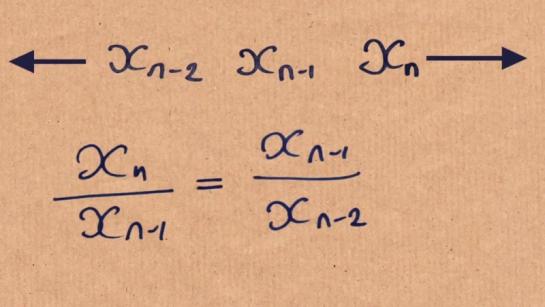 ← xₙ₋₂ xₙ₋₁ xₙ →
xₙ / xₙ₋₁ = xₙ₋₁ / xₙ₋₂